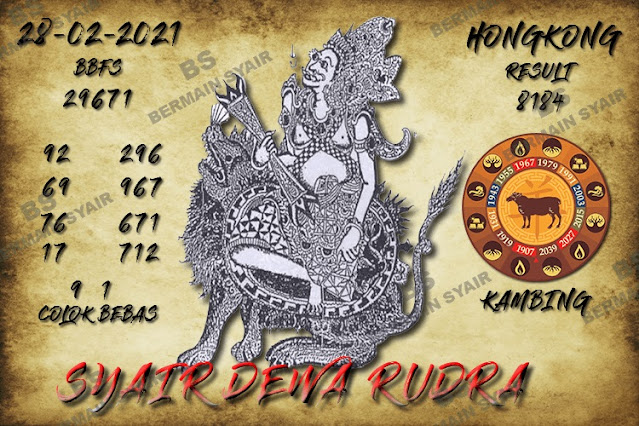 28-02-2021
BBFS
29671
92 296
69 967
76 671
17 712
9 1
COLOK BEBAS
HONGKONG
RESULT
8184
1931 1943 1955 1967 1979 1991 2003 2015 2027 2039 1907 1919
KAMBING
SYAIR DEWA RUDRA
BS
BERMAIN SYAIR
BS
BERMAIN SYAIR
BERMAIN SYAIR
BERMAIN SYAIR
BERMAIN SYAIR